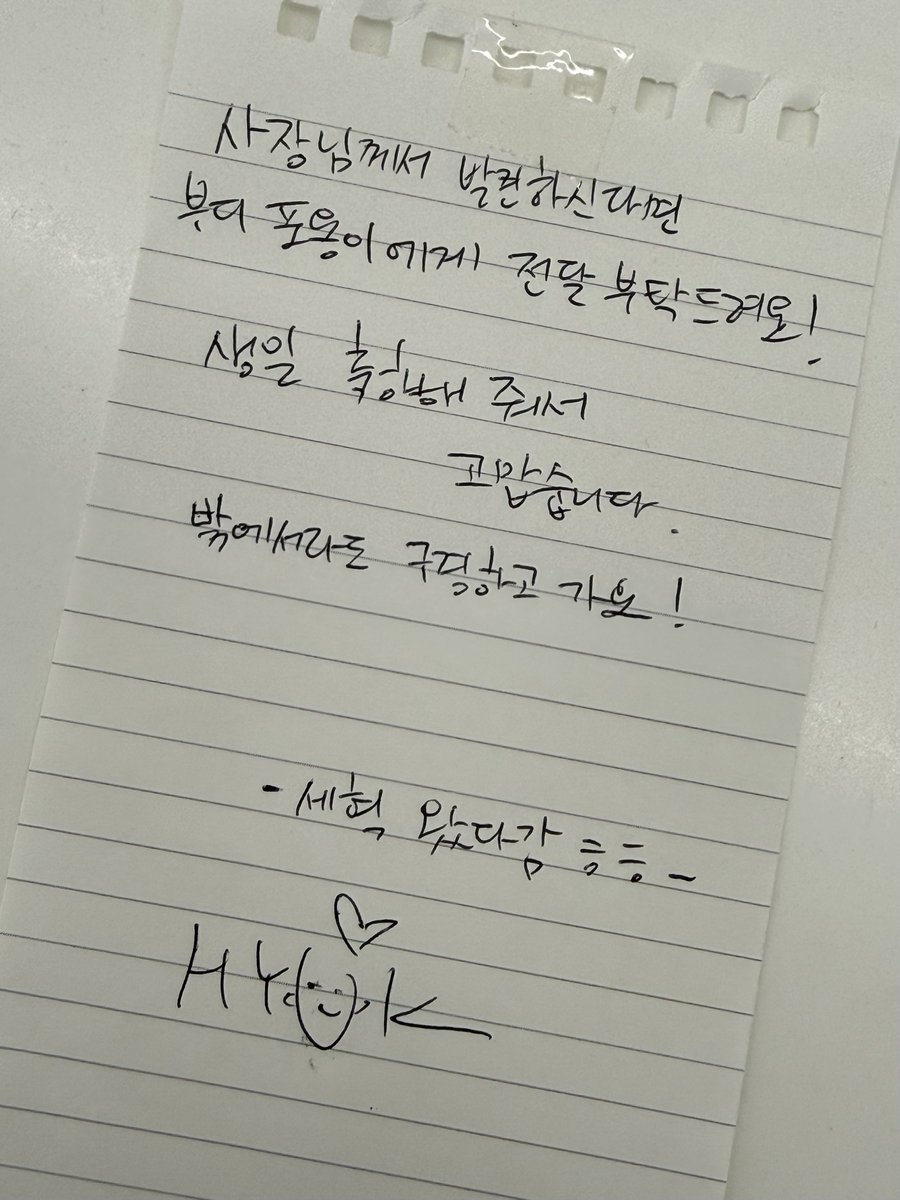 사장님께서 발견하신다면
부디 포용이에게 전달 부탁드려요!
생일 축하해 줘서
고맙습니다.
밖에서라도 구경하고 가요!
- 세혁 왔다감 ㅎㅎ -
HYOK